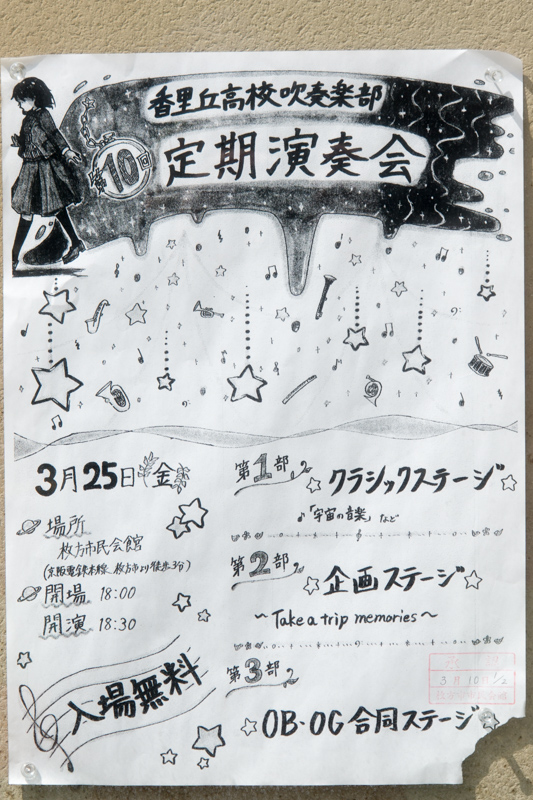 香里丘高校吹奏楽部
第10回
定期演奏会
3月25日(金)
場所
枚方市民会館
(京阪電鉄本線 枚方市より徒歩3分)
開場 18:00
開演 18:30
入場無料
第1部
クラシックステージ
♪「宇宙の音楽」など
第2部
企画ステージ
~Take a trip memories~
第3部
OB・OG 合同ステージ